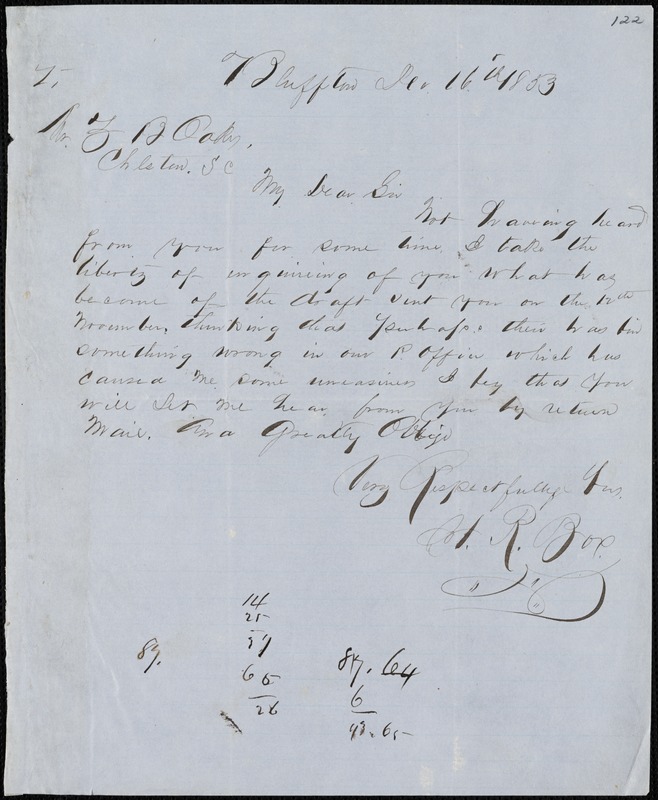 122
Bluffton Dec 16th 1853
Mr. Z B Oakes,
Chlston. S C
My Dear Sir
Not haaving heard
from you for some time I take the
liberty of inquireing of you what has
become of the draft sent you on the 12th
November, thinking that perhaps their has bin
something wrong in our P office which has
caused me some uneasiness I beg that you
will let me hear from you by return
Mail. And Greatly Oblige
Very Respectfully Yours.
R. Box
14
25
87.
65
26
87. 64
6
93.65